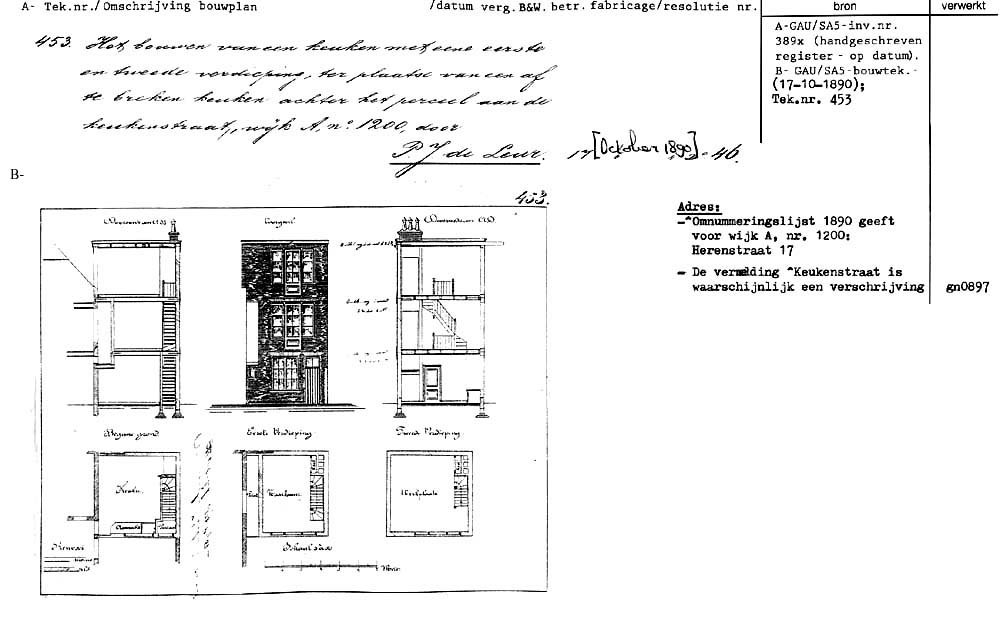 A- Tek.nr./Omschrijving bouwplan /datum verg.B&W. betr. fabricage/resolutie nr. bron verwerkt
453. Het bouwen van een keuken met eene eerste
en tweede verdieping, ter plaatse van een af
te breken keuken achter het perceel aan de
keukenstraat, wijk A, no. 1200, door
P. J. de Leur. 17 [October 1890] - 46.
A-GAU/SA5-inv.nr.
389x (handgeschreven
register - op datum).
B- GAU/SA5-bouwtek.-
(17-10-1890);
Tek.nr. 453
B-
453.
Adres:
-"Omnummeringslijst 1890 geeft
voor wijk A, nr. 1200:
Herenstraat 17
- De vermelding "Keukenstraat is
waarschijnlijk een verschrijving gn0897
Doorsnede
Voorgevel
Doorsnede
Begane grond
Eerste Verdieping
Tweede Verdieping
Keuken
Werkplaats
Schaal
Meter